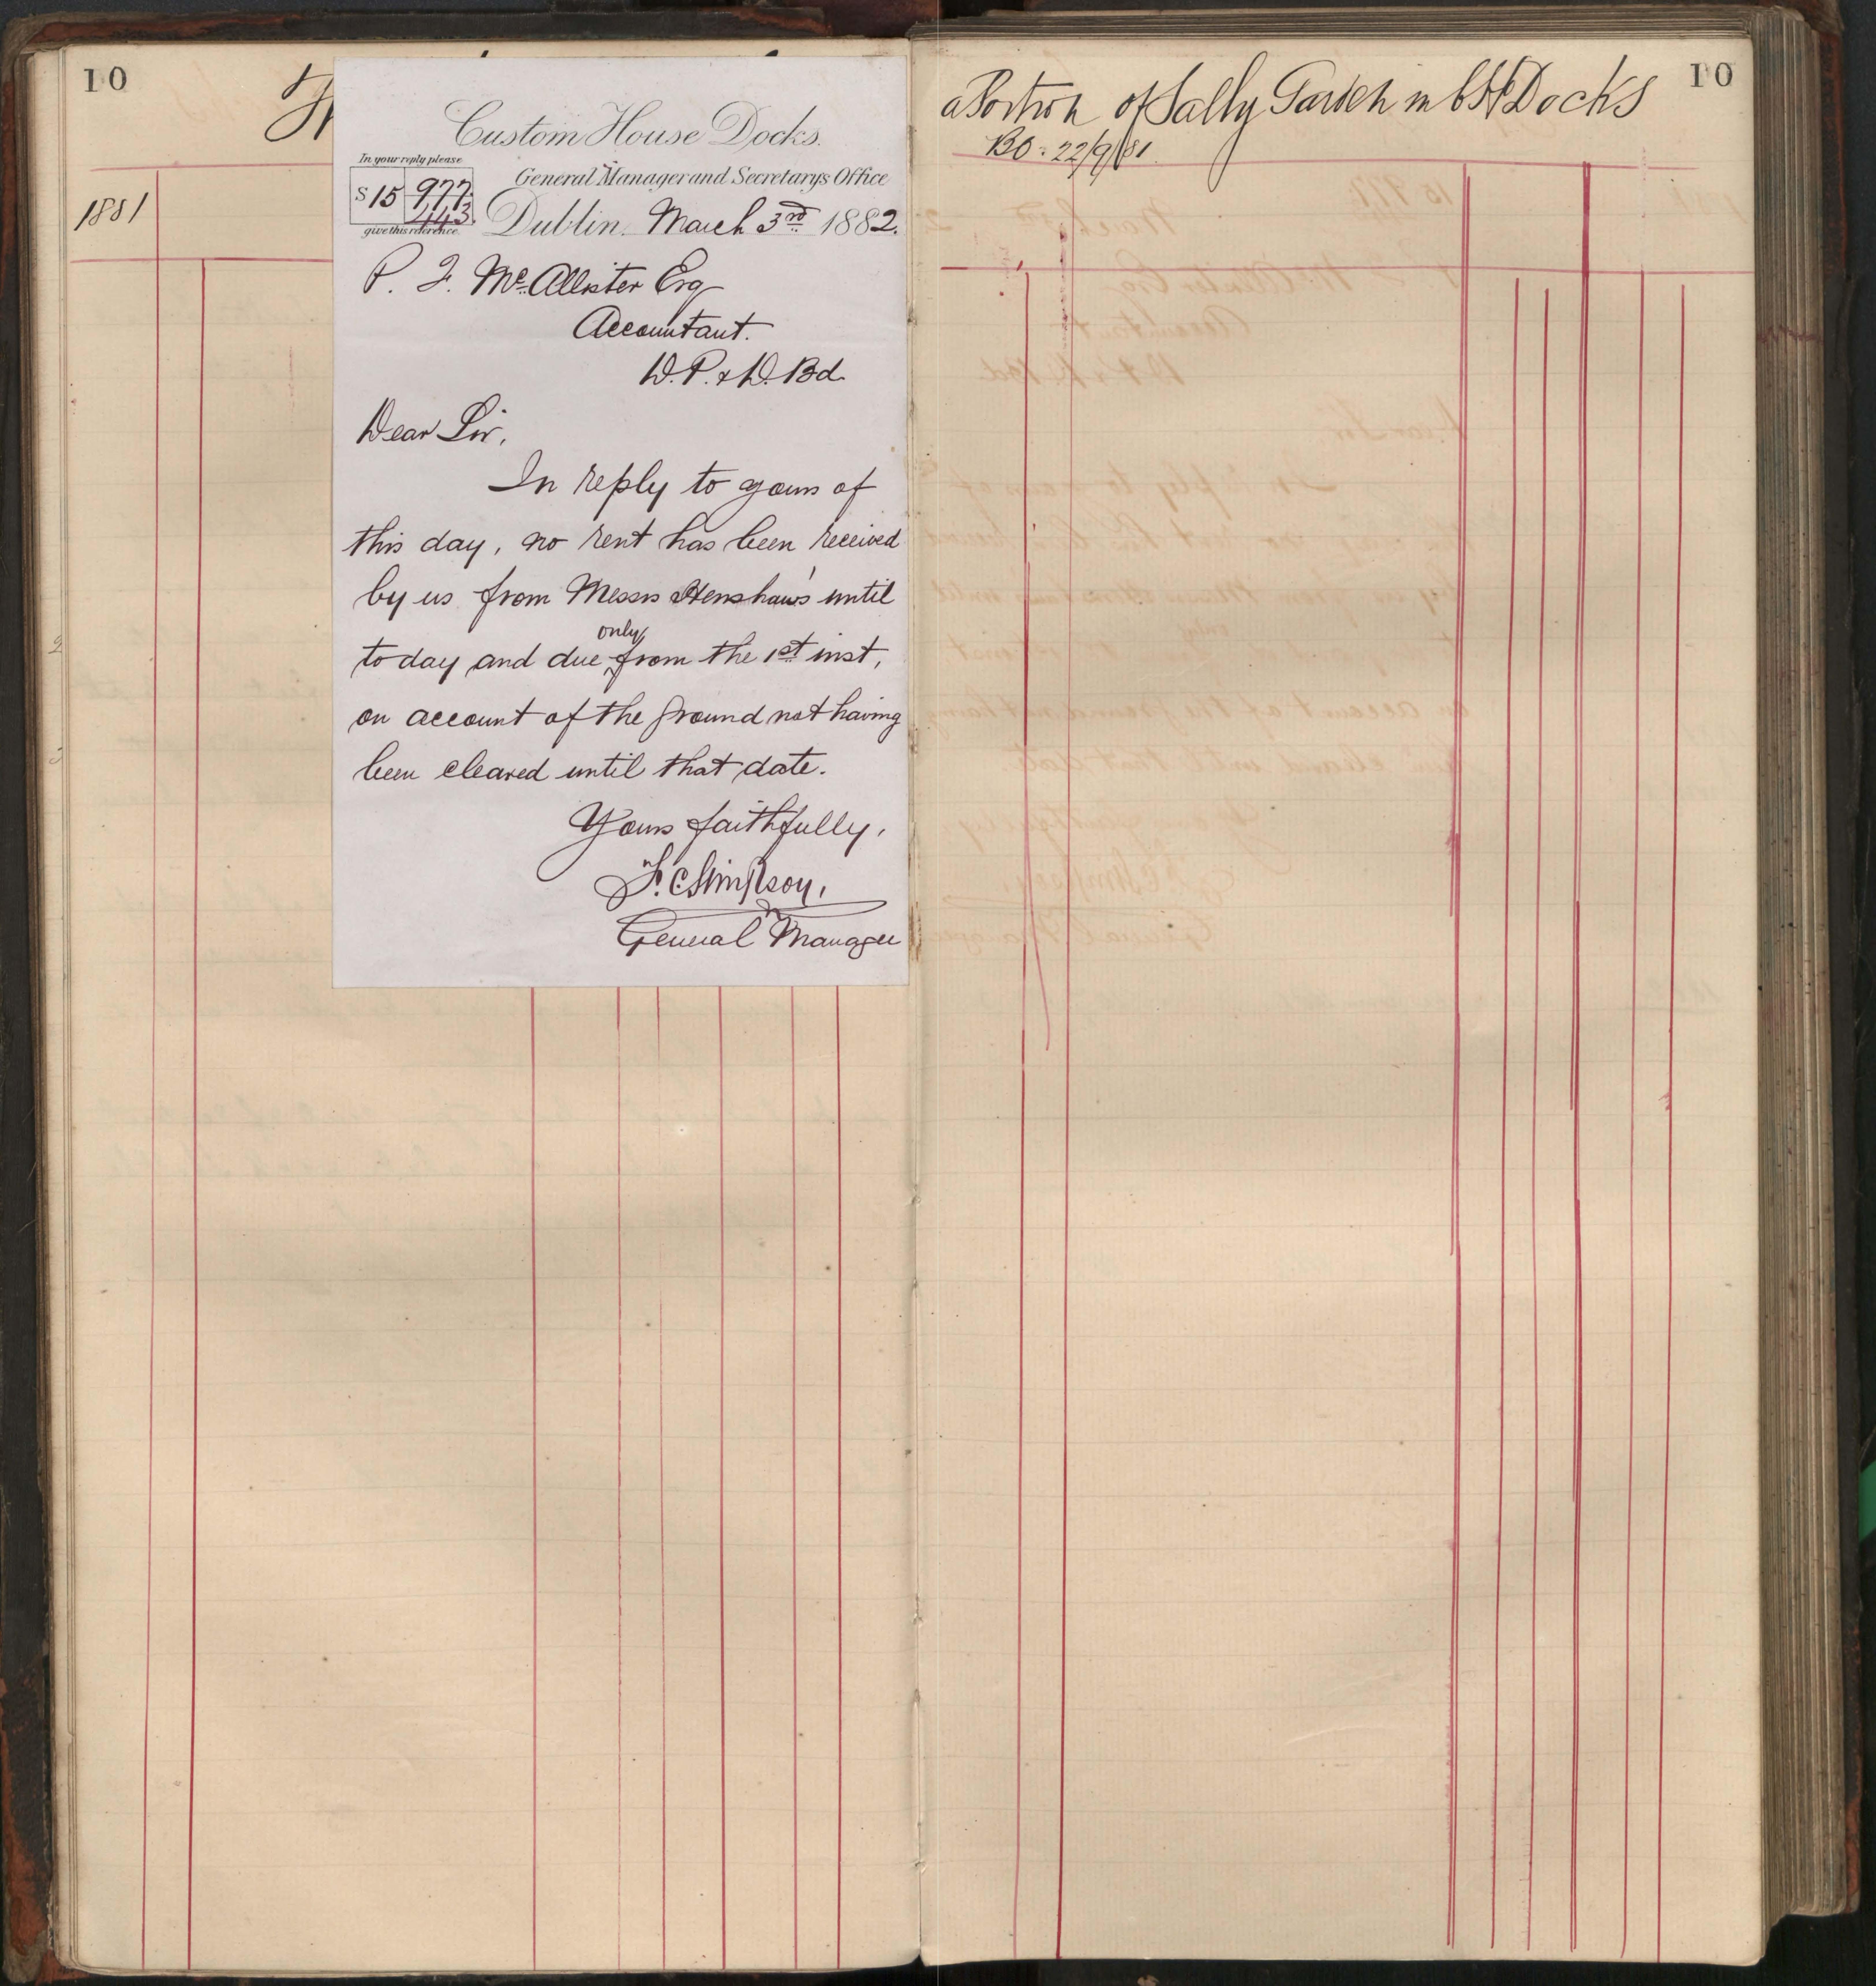 10
1881
Custom House Docks.
In your reply please
General Manager and Secretary's Office
S 15 977
443
give this reference.
Dublin March 3rd 1882.
P. F. McAllister Esq
Accountant.
D. P. & D. Bd.
Dear Sir,
In reply to yours of
this day, no rent has been received
by us from Messrs Henshaw's until
only
to day and due from the 1st inst,
on account of the ground not having
been cleared until that date.
Yours faithfully,
F. C. Simpson,
General Manager
a Portion of Sally Garden in C H Docks
10
BO. 22/9/81